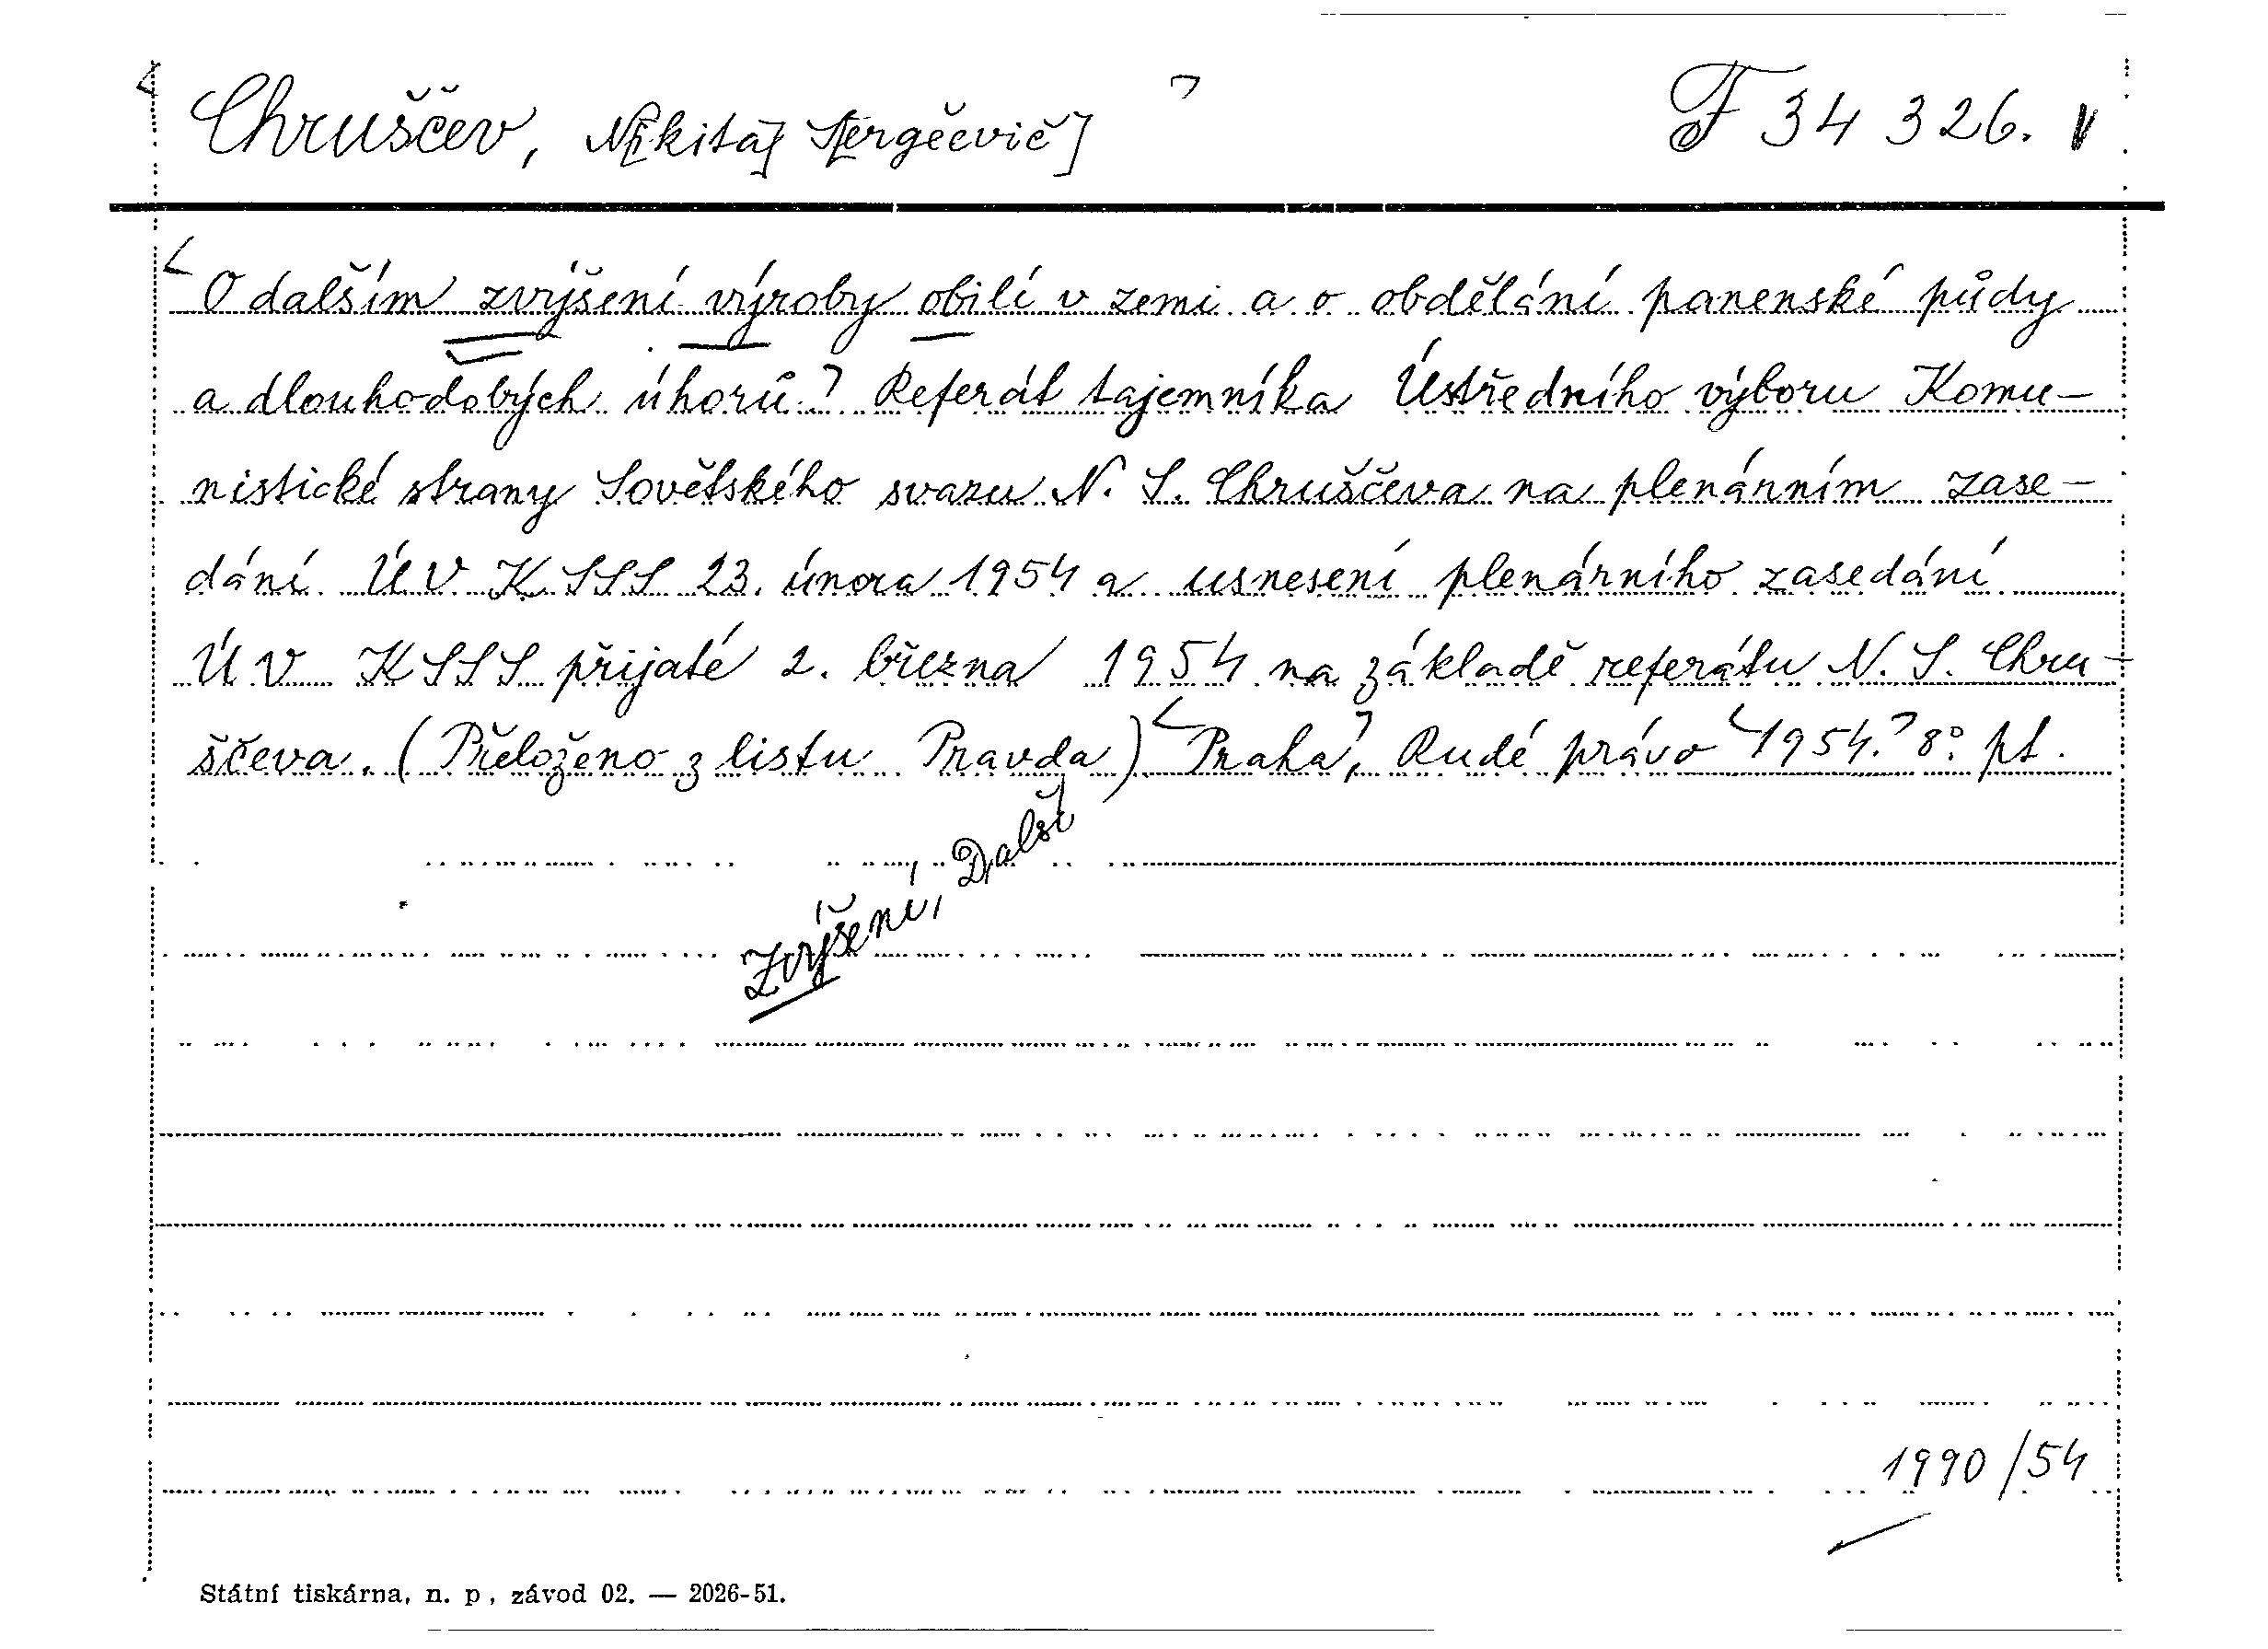 Chruščev, N[ikita] S[ergěevič] F 34 326.
O dalším zvýšení výroby obilí v zemi a o obdělání panenské půdy
a dlouhodobých úhorů. Referát tajemníka Ústředního výboru Komu-
nistické strany Sovětského svazu N. S. Chruščeva na plenárním zase-
dání ÚV KSSS 23. února 1954 a usnesení plenárního zasedání
ÚV KSSS přijaté 2. března 1954 na základě referátu N. S. Chru-
ščeva. (Přeloženo z listu Pravda) Praha, Rudé právo 1954. 8° pt.
Zvýšení, Další
1990/54
Státní tiskárna, n. p, závod 02. — 2026-51.